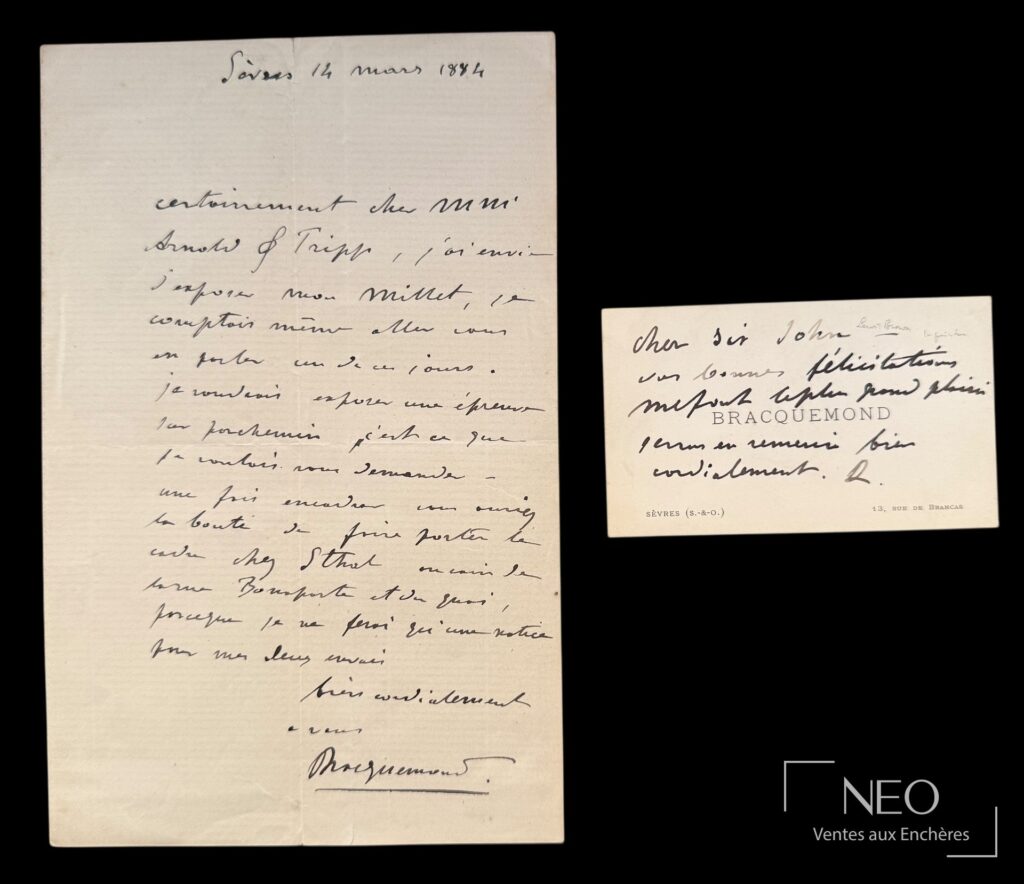 Sèvres 14 mars 1884
certainement cher MM
Arnold & Tripp, j'ai envie
d'exposer mon Millet, je
comptais même aller vous
en parler un de ces jours.
je voudrais exposer une épreuve
sur parchemin, c'est ce que
je voulais vous demander –
une fois encadrer vous auriez
la bonté de faire porter le
cadre chez Sthal au coin de
la rue Bonaparte et du quai,
parceque je ne ferai qu'une notice
pour mes deux envois
bien cordialement
a vous
Bracquemond.
cher sir John Lewis Brown
vos bonnes félicitations
me font le plus grand plaisir
BRACQUEMOND
je vous en remercie bien
cordialement.
SÈVRES (S.-&-O.)
13, RUE DE BRANCAS
NEO
Ventes aux Enchères